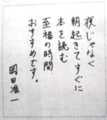 夜じゃなく
朝起きてすぐに
本を読む
至福の時間
おすすめです。
岡田准一